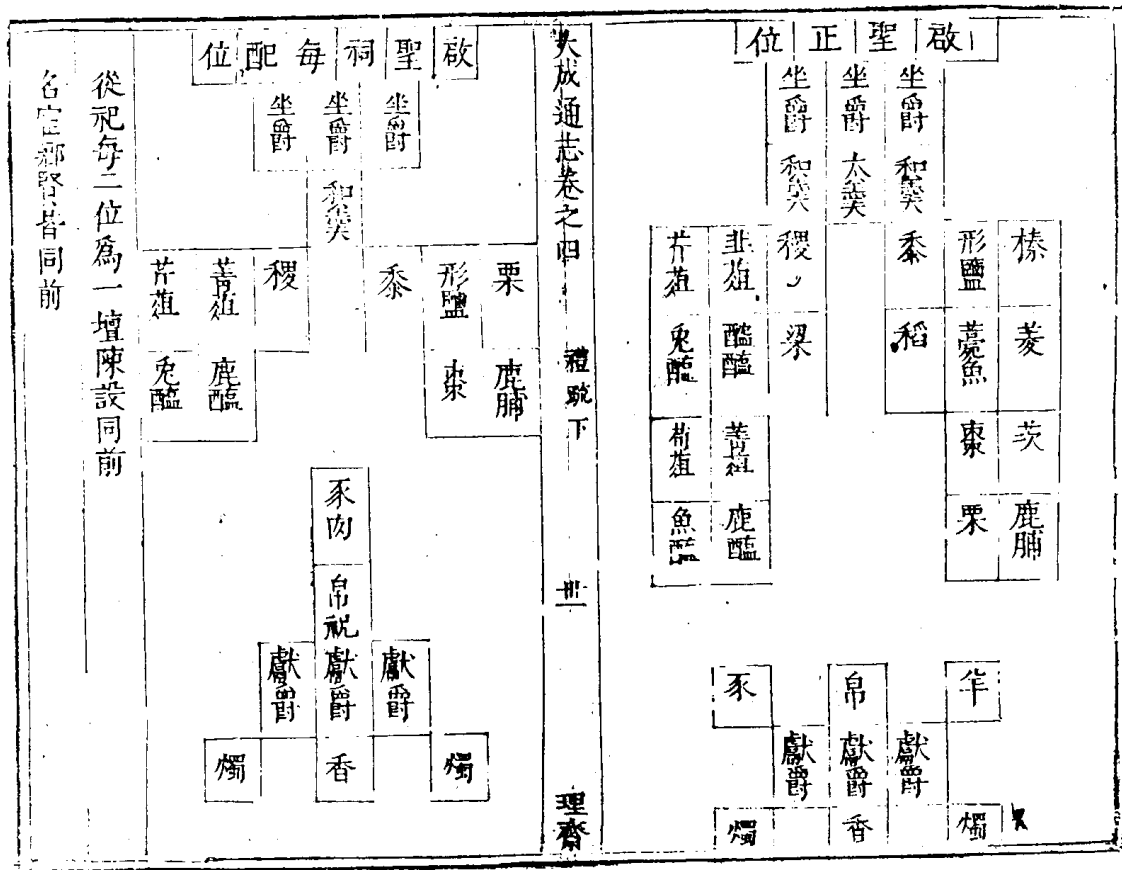 啟聖正位
坐爵 坐爵 坐爵
和羹 太羹 和羹
榛 形鹽 黍 稷 韭葅 芹葅
菱 藁魚 稻 梁 醓醢 兔醢
茨 棗 菁葅 筍葅
鹿脯 栗 鹿醢 魚醢
羊 帛 豕
獻爵 獻爵 獻爵
燭 香 燭
大成通志卷之四 禮疏下 卅一 理齋
啟聖祠每配位
坐爵 坐爵 坐爵
和羹
栗 形鹽 黍 稷 菁葅 芹葅
鹿脯 棗 鹿醢 兔醢
豕肉
帛祝
獻爵 獻爵 獻爵
燭 香 燭
從祀每二位為一壇陳設同前
名宦鄉賢皆同前